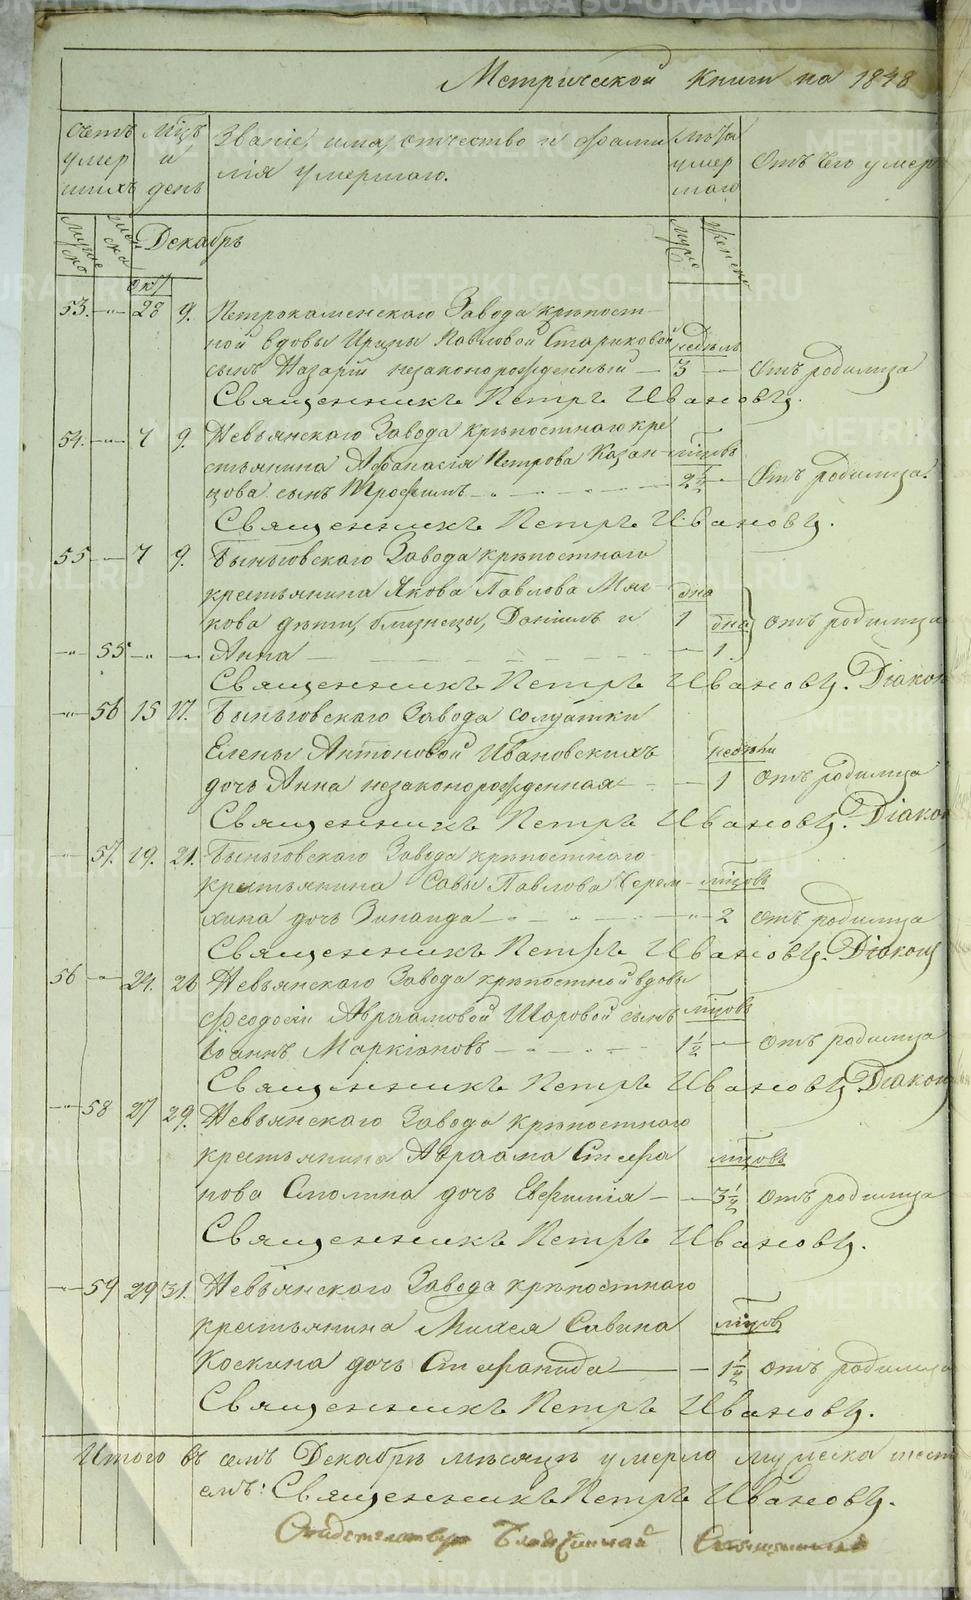 Метрической книги на 1848
счетъ умершихъ
мѣцъ и день
Званіе, имя, отчество и фамилія умершаго.
лѣта умершаго
Отъ чего умер
мужеска
женска
Декабрь
мужес
женска
53. „ 28 9. Петрокаменскаго Завода крѣпост-
ной вдовы Ирины Павловой Стариковой недѣль
сынъ Назарій незаконорожденный — 3 — Отъ родимца
Священникъ Петръ Ивановъ.
54. „ 7 9. Невьянскаго Завода крѣпостнаго кре
стьянина Афанасія Петрова Казан- мѣцовъ
цова сынъ Трофимъ 2 1/2 — Отъ родимца.
Священникъ Петръ Ивановъ.
55 — 7 9. Быньговскаго Завода крѣпостнаго
крестьянина Якова Павлова Мяг- дня
кова дѣти, близнецы, Даніилъ и 1 дня отъ родимца
„ 55 „ — Анна — 1.
Священникъ Петръ Ивановъ. Діакон
„ 56 15 17. Быньговскаго Завода солдатки
Елены Антоновой Ивановскихъ недѣли
дочь Анна незаконорожденная — 1 отъ родимца
Священникъ Петръ Ивановъ. Діакон
57. 19. 21. Быньговскаго Завода крѣпостнаго
крестьянина Савы Павлова Черем- мѣцовъ
хина дочь Зинаида „ 2 отъ родимца
Священникъ Петръ Ивановъ. Діаконъ
56 — 24. 26 Невьянскаго Завода крѣпостной вдовы
Феодосіи Авраамовой Шаровой сынъ мѣцовъ
Іоаннъ Маркіановъ 1 1/2 — отъ родимца
Священникъ Петръ Ивановъ Діаконъ
58 27 29. Невьянскаго Завода крѣпостнаго
крестьянина Авраама Стефа мѣцовъ
нова Смолина дочь Евфимія — 3 1/2 отъ родимца
Священникъ Петръ Ивановъ.
59 29 31. Невьянскаго Завода крѣпостнаго
крестьянина Михея Савина мѣцов
Коскина дочь Стефанида — 1 1/2 отъ родимца
Священникъ Петръ Ивановъ.
Итого въ семъ Декабрѣ мѣсяцѣ умерло мужеска
Священникъ Петръ Ивановъ.
Благочинный
METRIKI.GASO-URAL.RU